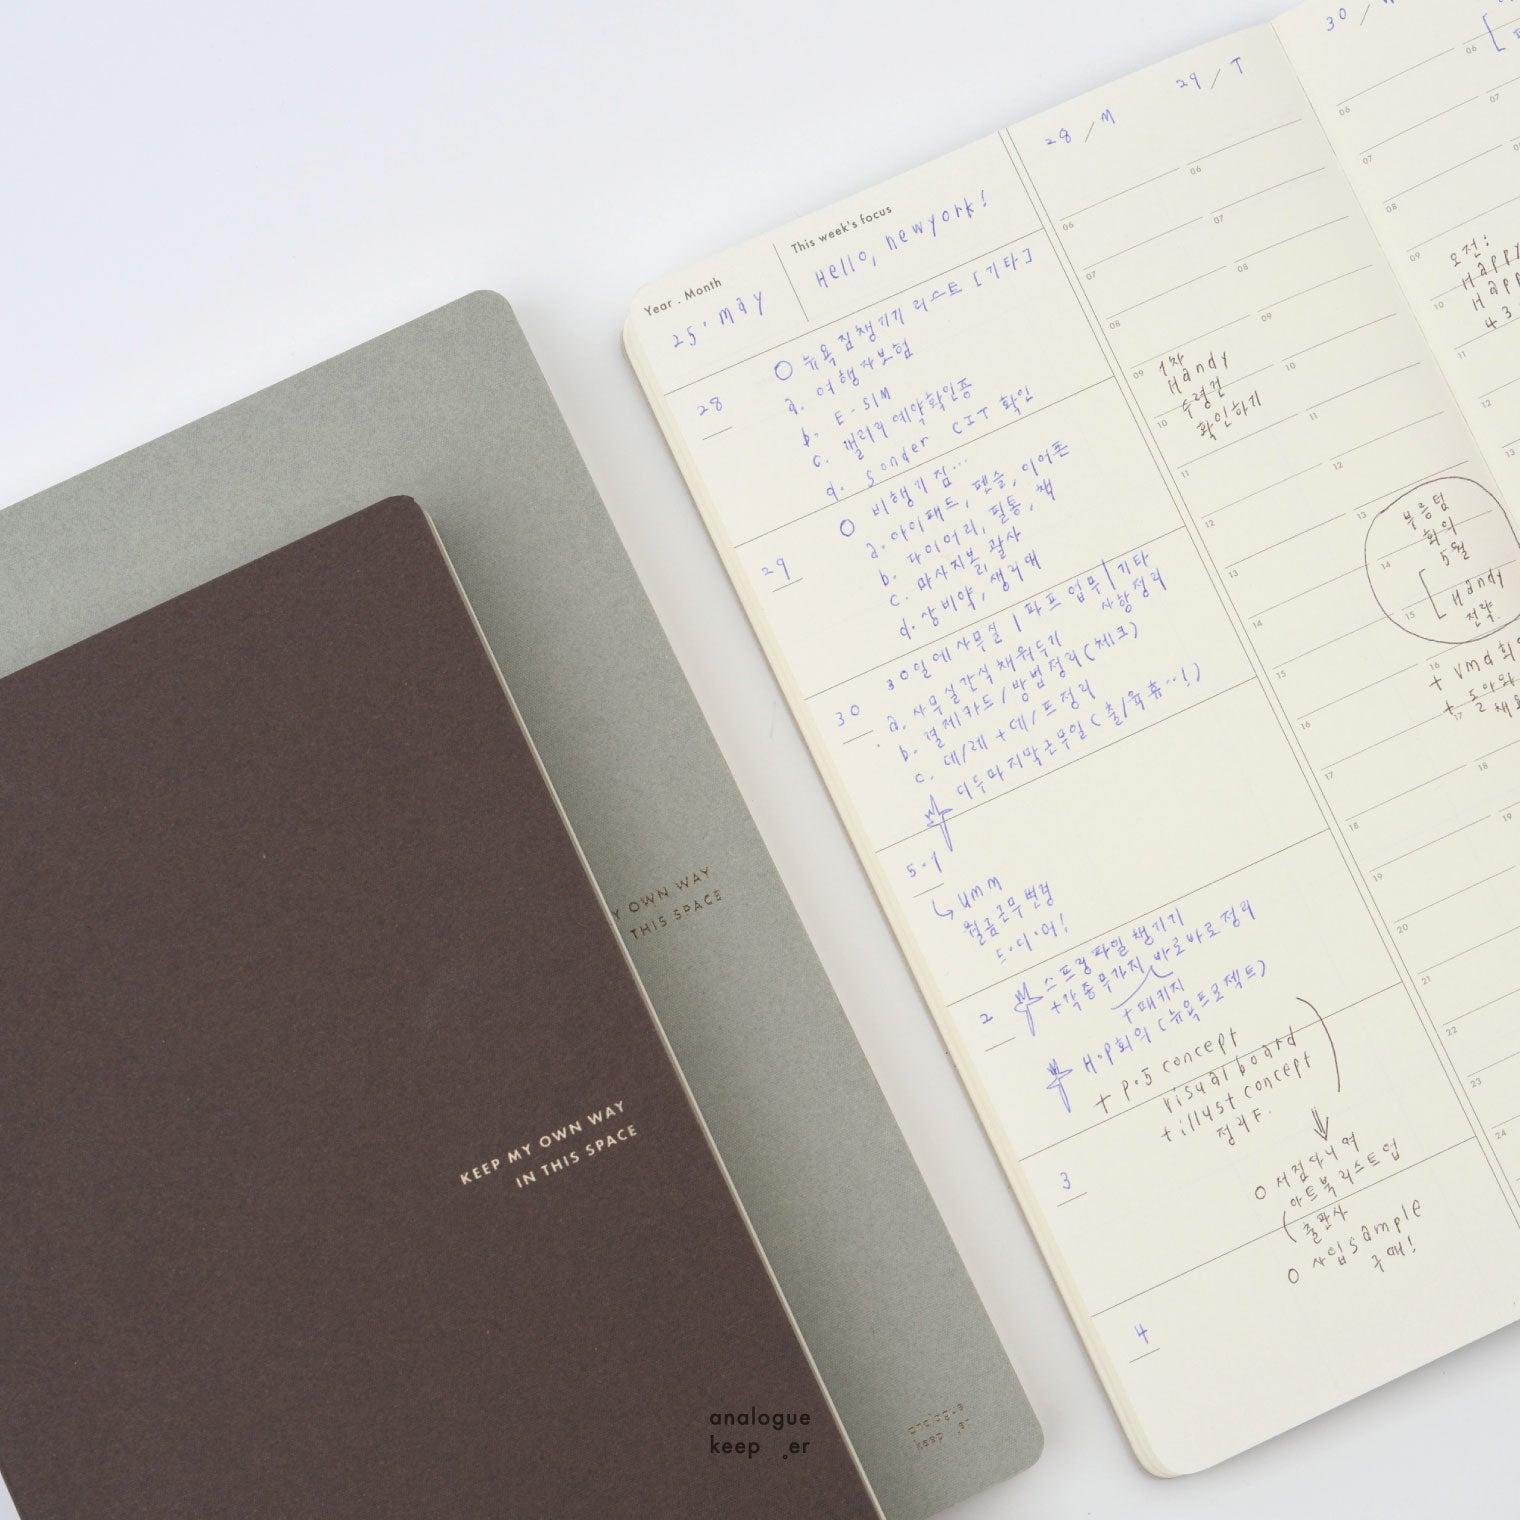 Year . Month
25. May
This week's focus
Hello, new york!
28
○ 뉴욕 짐챙기기 리스트 [기타]
a. 여행자보험
b. E-SIM
c. 갤러리 예약확인증
d. Sonder CIT 확인
29
○ 비행기 짐...
a. 아이패드, 펜슬, 이어폰
b. 다이어리, 필통, 책
c. 마사지볼, 괄사
d. 상비약, 생리대
30
30일에 사무실 | 파프 업무 | 기타
사항정리
a. 사무실간식 채워두기
b. 결제카드/방법정리(체크)
c. 데/레 + 데/드정리
디두마지막근무일(출/육휴...!)
5.1
umm
월금근무변경
드.디.어!
2
스프링파일 챙기기
+각종무가지 바로바로정리
+패키지
H.P회의(뉴욕프로젝트)
+ P.5 concept
visual board
+illust concept
정리F.
3
○ 서점다니며
(아트북리스트업
출판사
○ 사입sample
구매!
4
28 / M
06
07
08
09
1차
Handy
수령건
확인하기
10
11
12
13
14
15
16
17
18
19
20
21
22
23
24
29 / T
06
07
08
09
10
11
12
13
14
15
부릉텀
회의
5월
Handy
전략.
16
+ vmd회
17
18
19
30 /
06
07
08
09
오전:
Happy
10
Happ
43
11
12
13
06
07
Y OWN WAY
THIS SPACE
KEEP MY OWN WAY
IN THIS SPACE
analogue
keep er
analogue
keep er